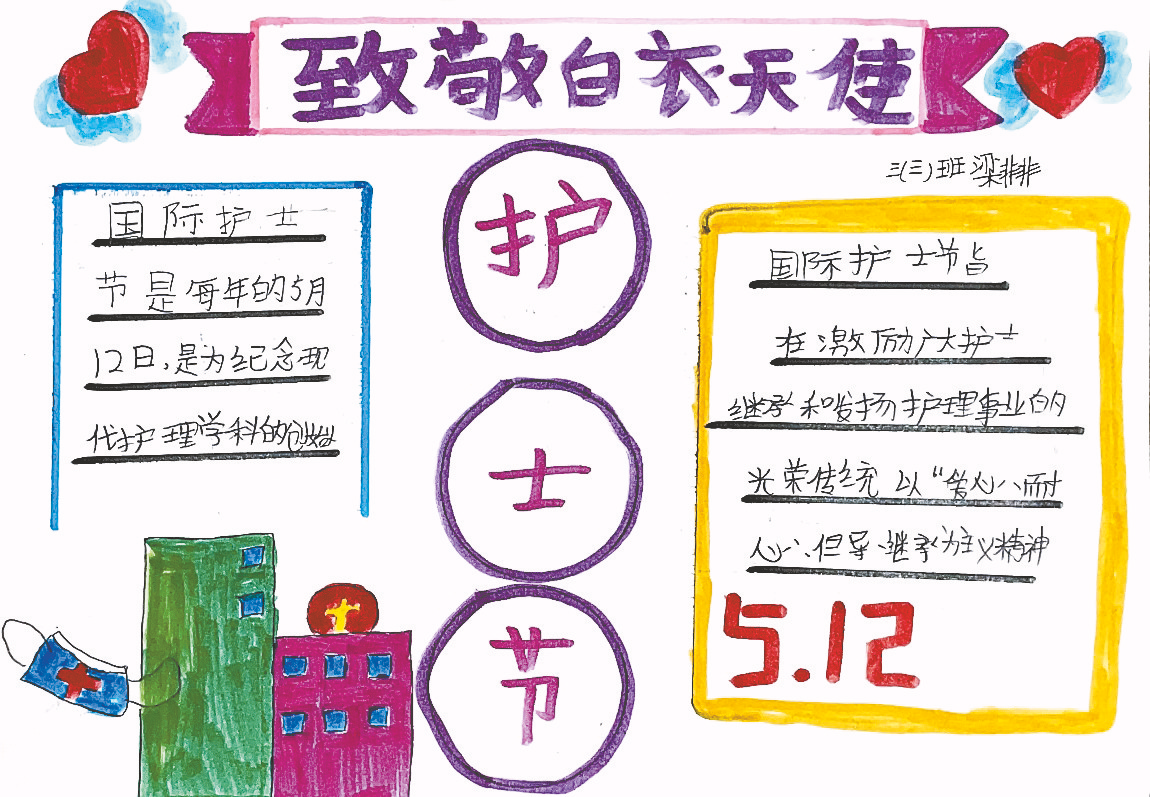 致敬白衣天使
三(三)班 梁非非
国际护士
节是每年的5月
12日,是为纪念现
代护理学科的创始
护
士
节
国际护士节旨
在激励广大护士
继承和发扬护理事业的
光荣传统 以“爱心、耐
心、但导、继承为主义精神
5.12